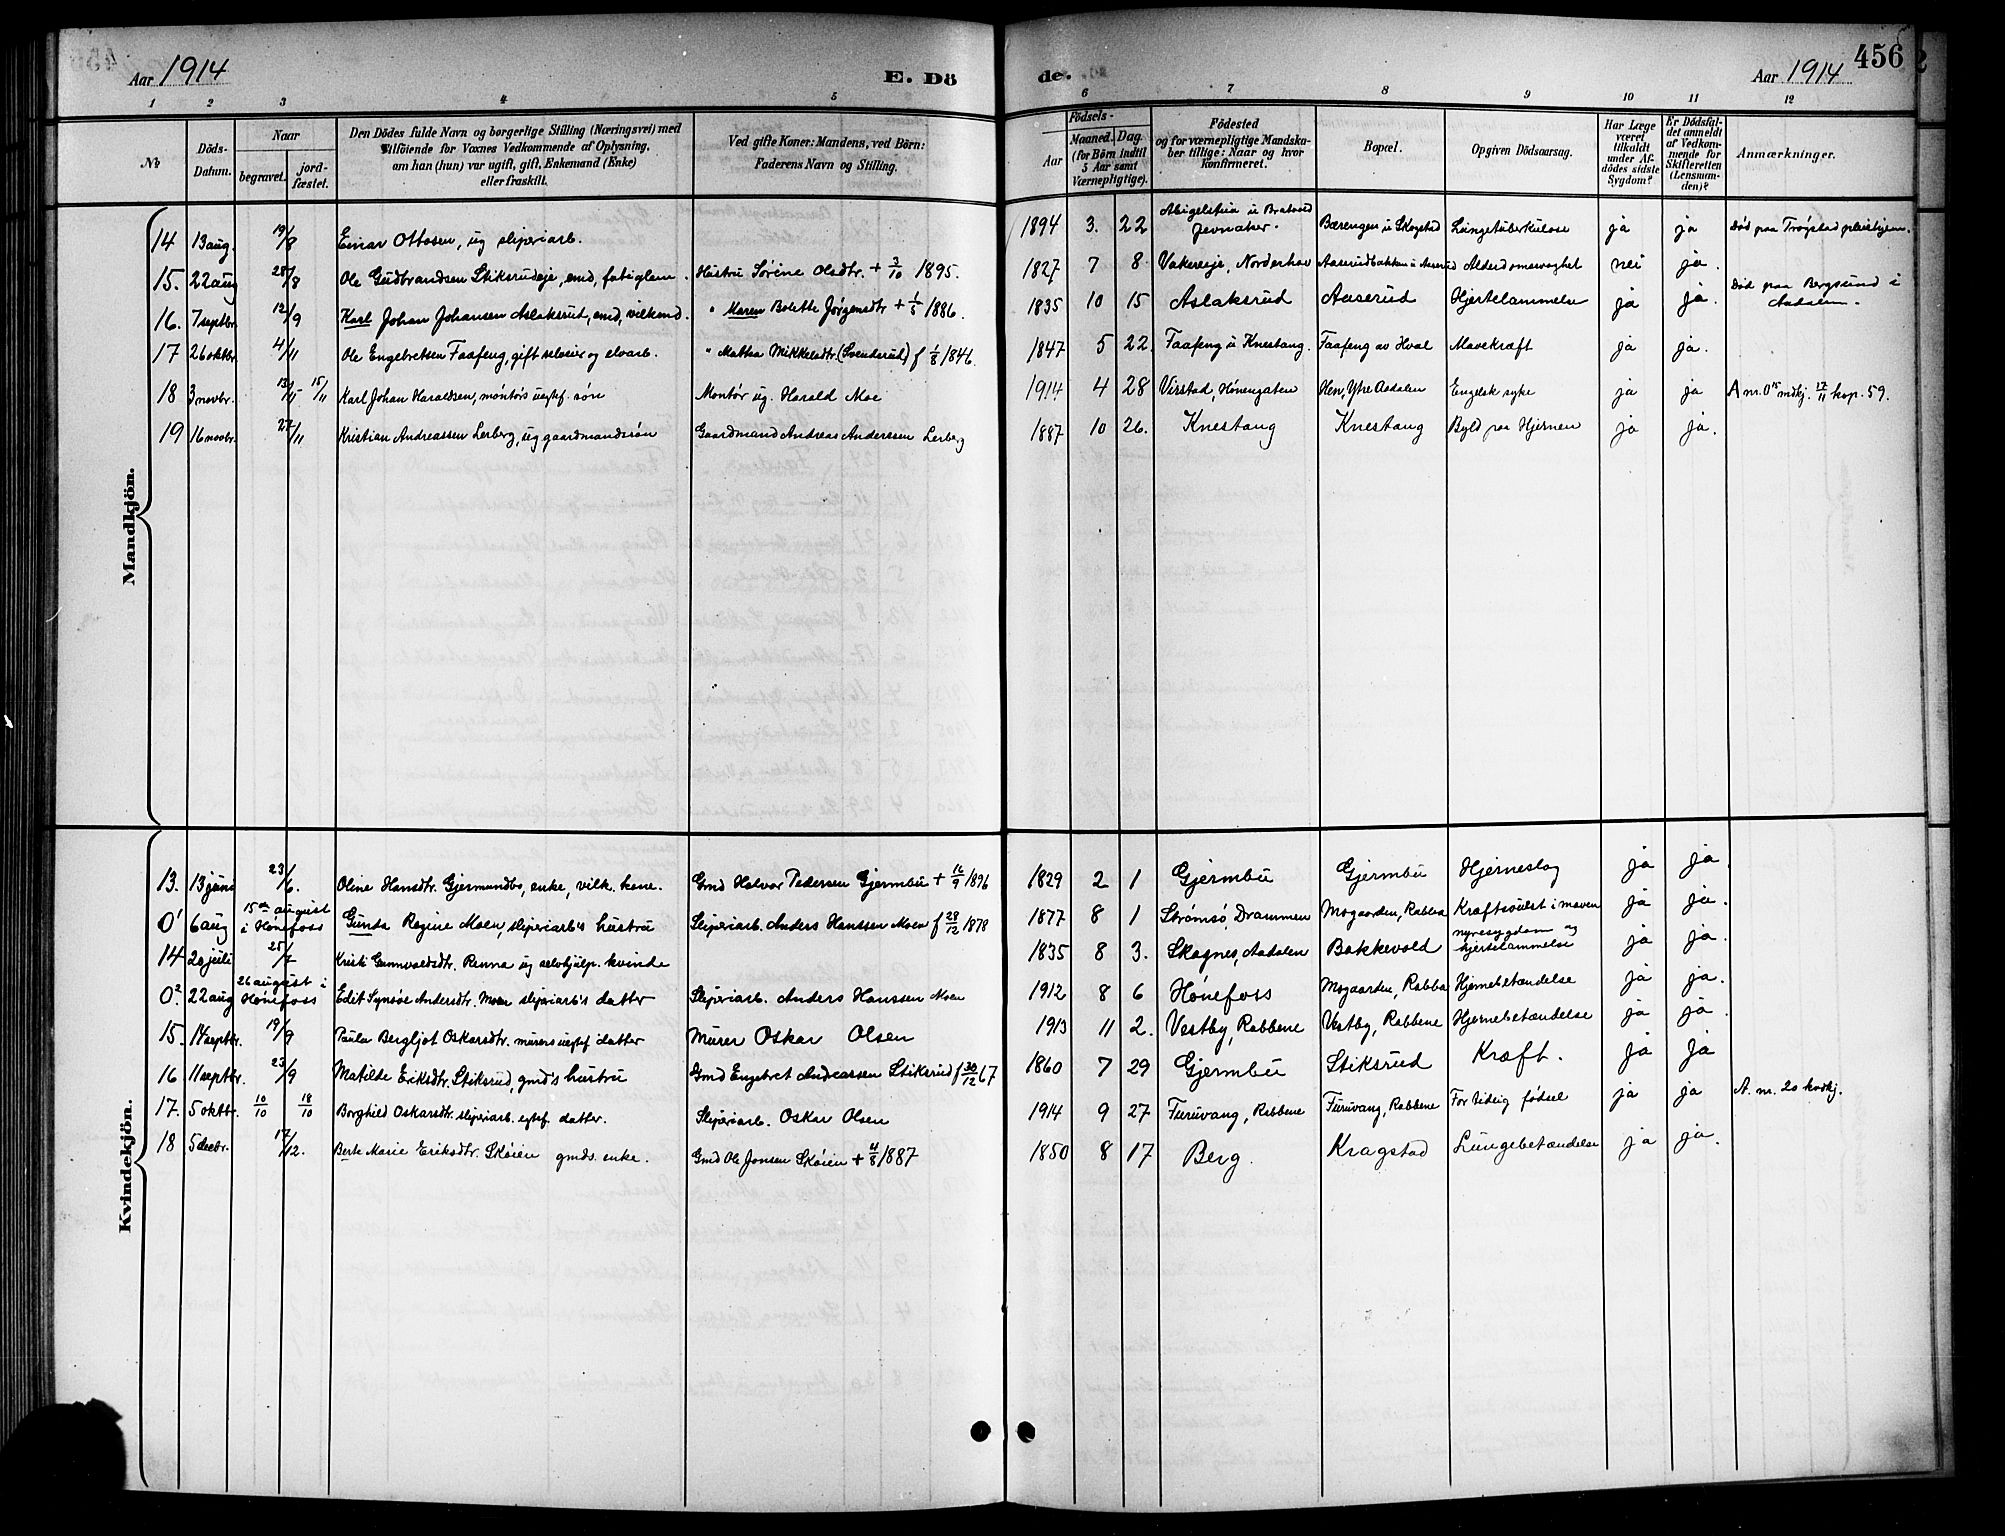 Aar 1914
E. Dö
de.
Aar 1914
456
1 2 3 4 5 6 7 8 9 10 11 12
No
Döds-Datum.
Naar
begravet.
jord-fæstet.
Den Dödes fulde Navn og borgerlige Stilling (Næringsvei) med
Tilföiende for Voxnes Vedkommende af Oplysning,
om han (hun) var ugift, gift, Enkemand (Enke)
eller fraskilt.
Ved gifte Koner: Mandens, ved Börn:
Faderens Navn og Stilling.
Födsels-
Aar
Maaned. Dag.
(for Börn indtil
5 Aar samt
Værnepligtige).
Födested
og for værnepligtige Mandska-
ber tillige: Naar og hvor
konfirmeret.
Bopæl.
Opgiven Dödsaarsag.
Har Læge
været
tilkaldt
under Af-
dödes sidste
Sygdom?
Er Dödsfal-
det anmeldt
af Vedkom-
mende for
Skifteretten
(Lensman-
den)?
Anmærkninger.
Mandkjön.
14 13 aug. 19/8 Einar Ottosen, ug sliperiarb. 1894 3. 22 Jevnaker. Bærengen u Skagstad Lungetuberkulose ja ja Død paa Trøgstad pleiehjem.
15. 22 aug 28/8 Ole Gudbrandsen Stiksrudeje, emd, fatiglem. Hustru Sørine Olsdtr. + 3/10 1895. 1827 7 8. Vakereje, Norderhov Aaserudbakken u Aaserud Alderdomssvaghet nei ja.
16. 7 septbr. 12/9 Karl Johan Johansen Aslaksrud, emd, vilkmd. " Maren Bolette Jørgensdtr + 1/5 1886. 1835 10 15 Aslaksrud Aaserud Hjertelammelse ja ja. Død paa Bergsund i Aadalen.
17 26 oktbr. 4/11 Ole Engebretsen Faafeng, gift selveier og elvarb. " Mathea Mikkelsdtr. (Svenderud) f 1/8 1846. 1847 5 22. Faafeng u Knestang. Faafeng av Hval Mavekræft ja ja.
18 3 novbr. 13/11 15/11 Karl Johan Haraldsen, montørs uegtef. søn Montør ug. Harald Moe 1914 4 28 Virstad, Hønengaten Hen, Ytre Aadalen Engelsk syke ja ja A nr. 0 15 mdkj. 17/11 kop. 59.
19 16 novbr. 27/11 Kristian Andreassen Lerberg, ug gaardmandssøn Gaardmand Andreas Anderssen Lerberg 1887 10 26. Knestang Knestang Byld paa Hjernen ja ja.
Kvindekjön.
13. 13 juni 23/6. Oline Hansdtr. Gjermundbo, enke, vilk. kone. Gmd Halvor Pedersen Gjermbu + 16/9 1896 1829 2 1 Gjermbu Gjermbu Hjerneslag ja ja
0¹ 6 aug 15de august i Hønefoss Gunda Regine Moen, sliperiarb's hustru Sliperiarb. Anders Hanssen Moen f 28/12 1878 1877 8 1 Strømsø, Drammen Mogaarden, Rabba Kræftsvulst i maven ja ja.
14 20 juli 25/7 Kristi Gunnvoldsdtr. Renna ug selvhjulp. kvinde 1835 8 3. Skagnes, Aadalen Bakkevold nyresygdom og hjertelammelse ja ja.
0². 22 aug 26 august i Hønefoss Edit Synøve Andersdtr. Moen sliperiarb's datter Sliperiarb. Anders Hanssen Moen 1912 8 6 Hønefoss Mogaarden, Rabba Hjernebetændelse ja ja.
15. 14 septbr. 19/9 Paula Bergljot Oskarsdtr. murers uegtef datter Murer Oskar Olsen 1913 11 2. Vestby, Rabbene Vestby, Rabbene Hjernebetændelse ja ja.
16 11 septbr. 23/9 Matilde Eriksdtr. Stiksrud, gmd's hustru Gmd Engebret Andreassen Stiksrud f 30/12 67 1860 7 29 Gjermbu Stiksrud Kræft. ja ja
17. 5 oktbr. 10/10 18/10 Borghild Oskarsdtr. sliperiarb. egtef datter. Sliperiarb. Oskar Olsen 1914 9 27 Furuvang, Rabbene Furuvang, Rabbene For tidig fødsel ja ja A. nr. 20 kvdkj.
18 5 decbr. 17/12. Berte Marie Eriksdtr. Skøien gmds. enke. Gmd Ole Jonsen Skøien + 4/8 1887 1850 8 17 Berg. Kragstad Lungebetændelse ja ja.